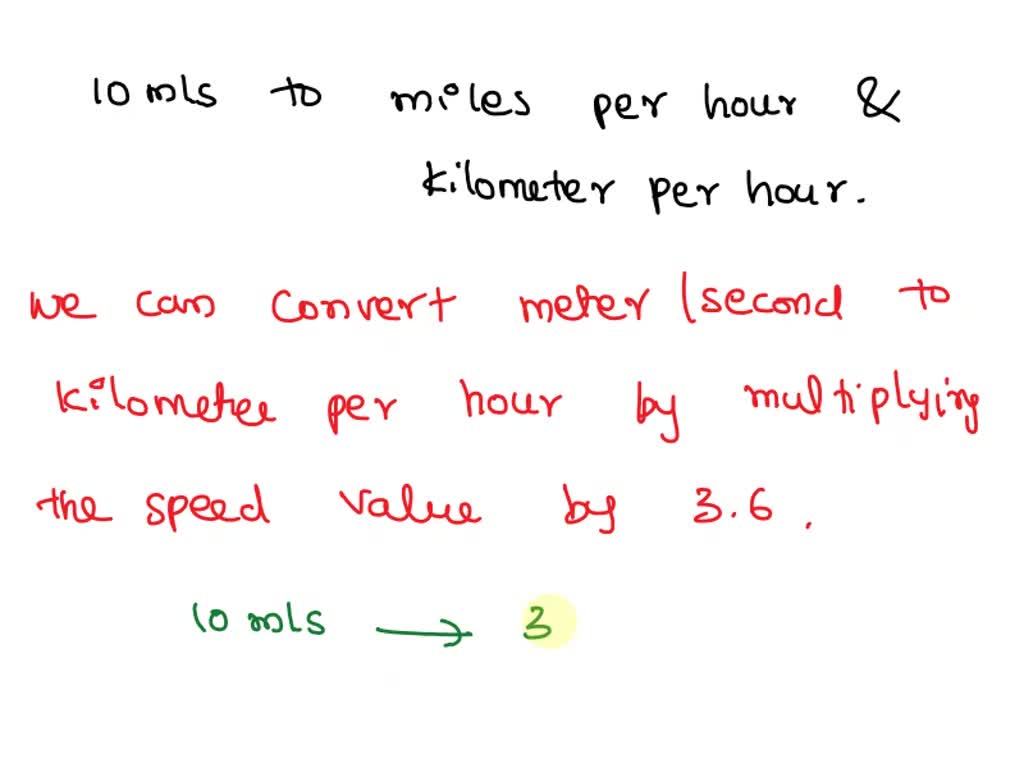 10 m/s to miles per hour &
kilometer per hour.
we can convert meter/second to
kilometer per hour by multiplying
the speed value by 3.6.
10 m/s → 3